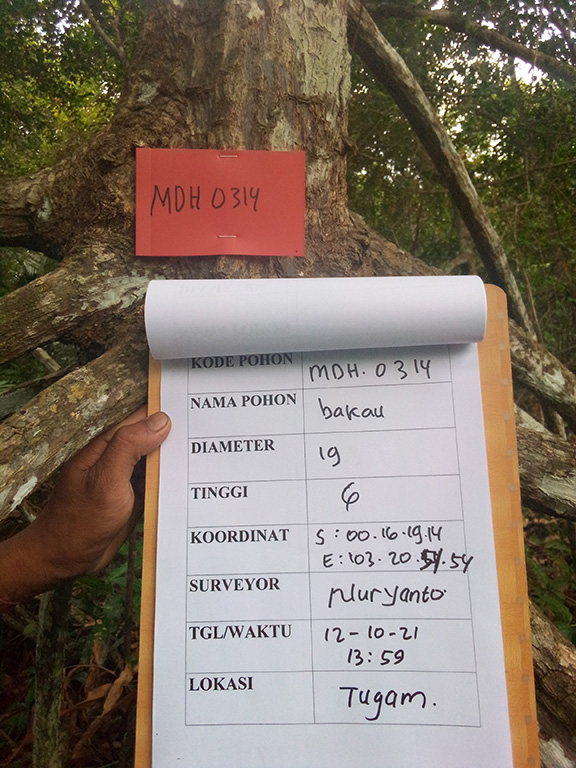 MDH 0314
KODE POHON MDH. 0314
NAMA POHON bakau
DIAMETER 19
TINGGI 6
KOORDINAT S : 00.16.19.14
E: 103.20. .54
SURVEYOR Nuryanto.
TGL/WAKTU 12-10-21
13:59
LOKASI Tugam.